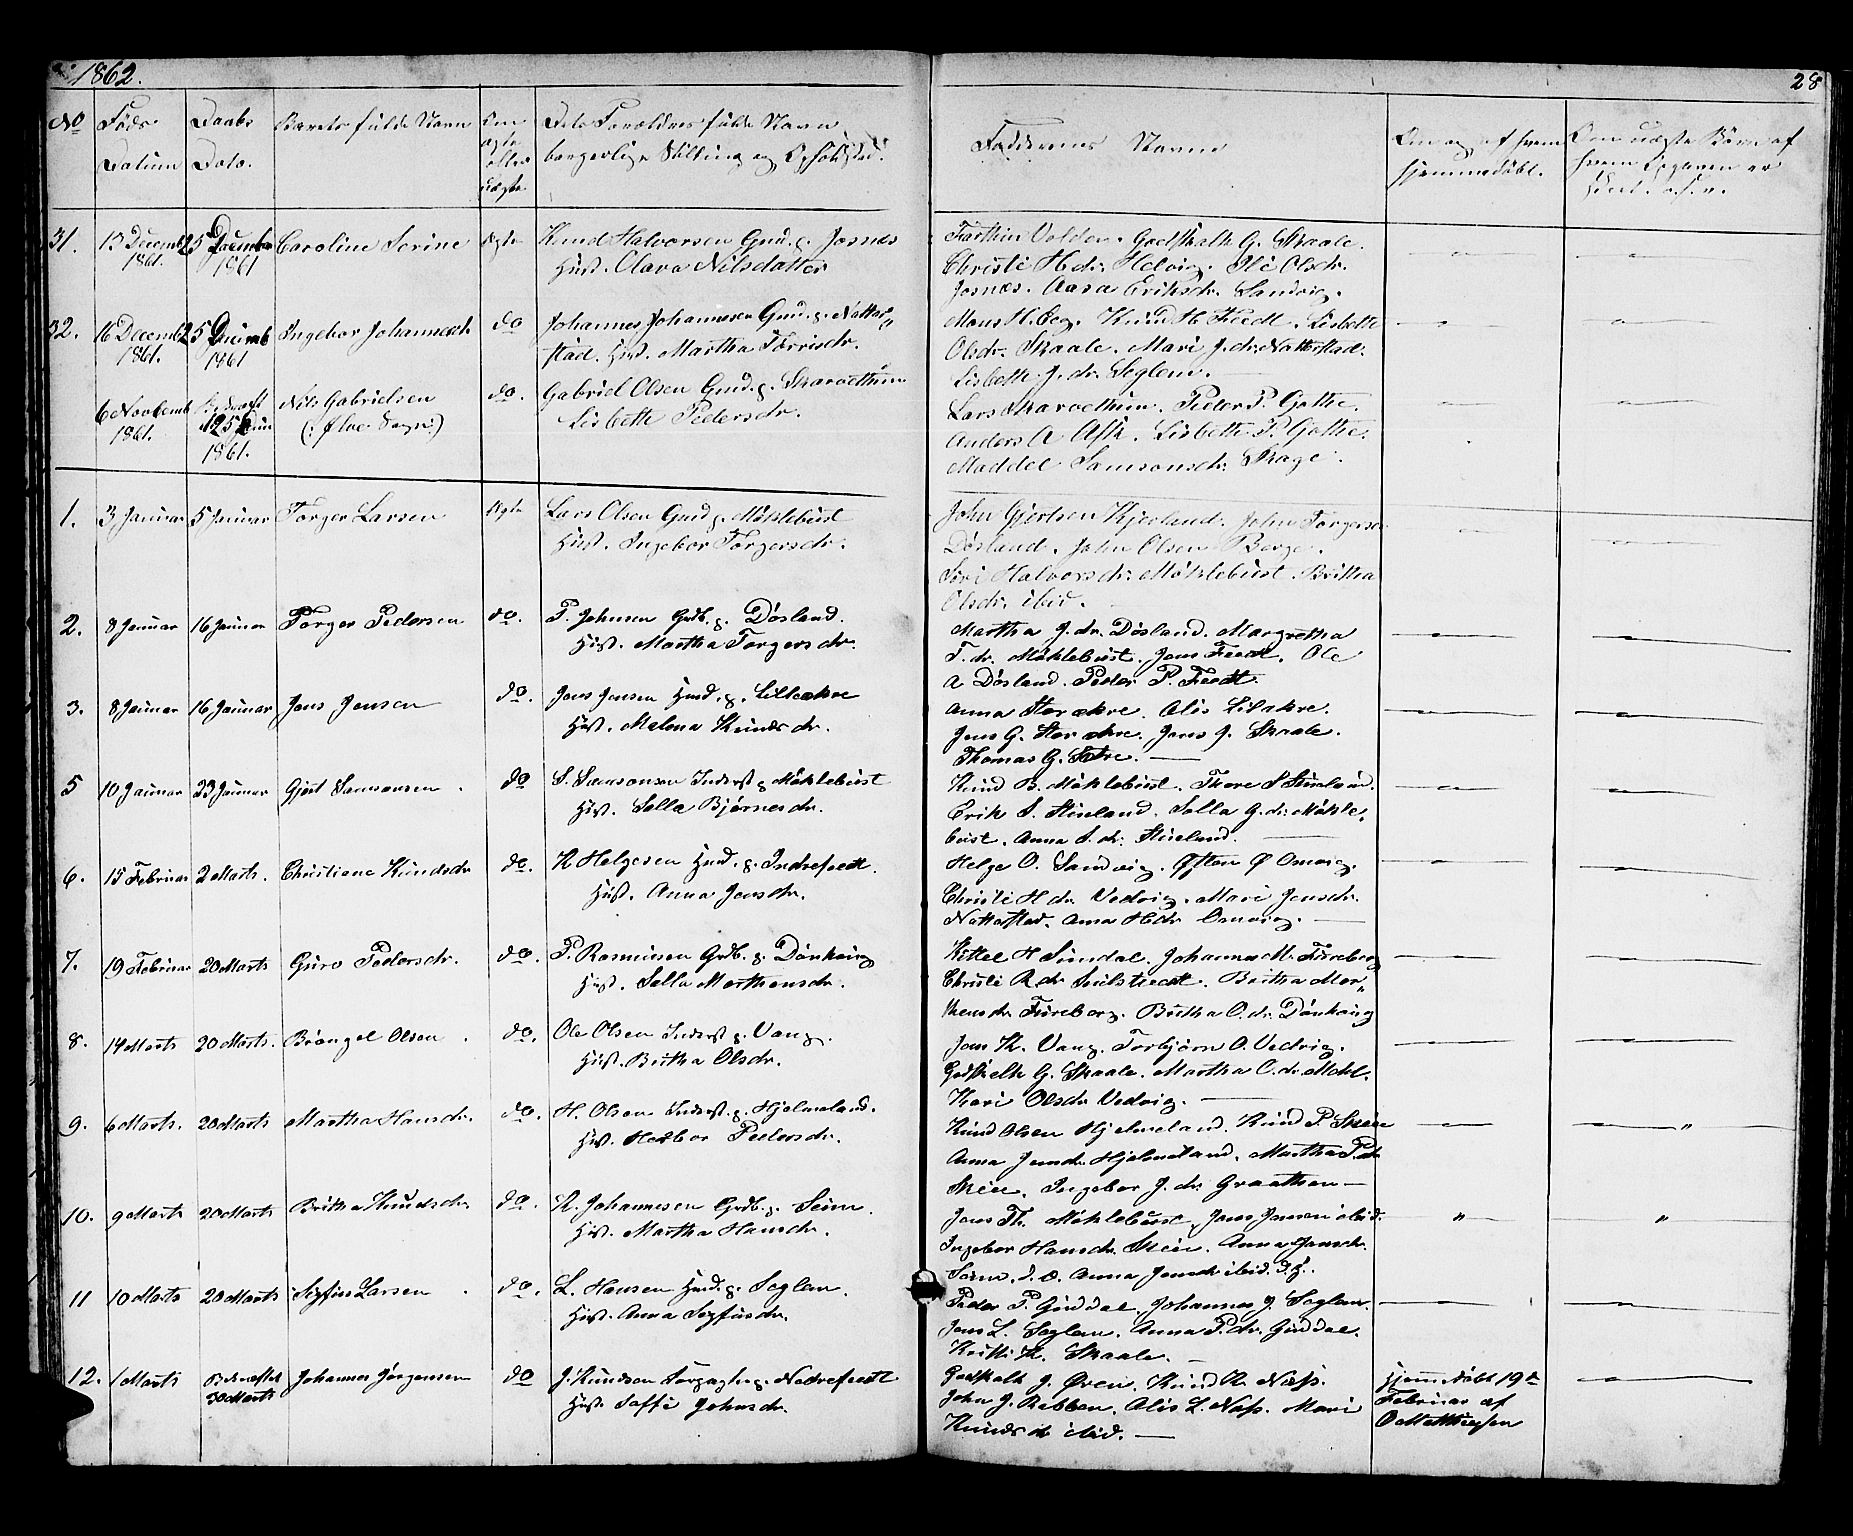 1862.
28
No
Føds-
Datum
Daabs
Dato.
Barnets fulde Navn
Om
ægte
eller
uægte
Dets Forældres fulde Navn
borgerlige Stilling og Opholdsted.
Faddernes Navne
Om og af hvem
hjemmedøbt.
31.
13 Decemb
1861.
25 December
1861
Caroline Serine
Ægte
Knud Halvorsen Gmd. p. Josnes
Hust. Clara Nilsdatter
Torstin Velder. Godskalk G. Skaale.
Christi H.dr. Helvig. Ili Olsdr.
Josnes. Aasa Eriksdr. Sandvig.
32.
16 Decemb
1861.
25 Decemb
1861
Ingebor Johannesdr
do
Johannes Johannesen Gmd. p. Natter-
stad. Hust. Martha Torrisdr.
Mons H. Eeg. Knud H. Tvedt. Lisbeth
Olsdr. Skaale. Mari J.dr. Natterstad.
Lisbeth J.dr. Seglem.
6 Novbemb
1861.
1861.
Nils Gabrielsen
(: Ølve Sogn:)
do.
Gabriel Olsen Gmd. p. Skarvethun
Lisbeth Pedersdr.
Lars Skarvethun. Peder P. Gothe.
Anders A Ask. Lisbeth P. Gothe.
Maddel Samsonsdr. Skage.
1.
3 Januar
5 Januar
Torger Larsen
Ægte
Lars Olsen Gmd p. Møklebust
Hust. Ingebor Torgersdr.
John Gjertsen Kjerland. John Torgersen
Døsland. John Olsen Berge.
Siri Halvorsdr. Møklebust. Britha
Olsdr. ibid.
2.
8 Januar
16 Januar
Torger Pedersen
do.
P. Johnsen Grdb. p. Døsland.
Hust. Martha Torgersdr.
Martha J.dr. Døsland. Margretha
T.dr. Møklebust. Jens Tvedt. Ole
A Døsland. Peder P. Tvedt.
3.
8 Januar
16 Januar
Jens Jensen
do.
Jens Jensen Hmd. p. Lilleakre
Hust. Malena Knudsdr.
Anna Storakre. Alis Lilakre.
Jens G. Storakre. Jens J. Skaale.
Thomas G. Sætre.
5
10 Januar
23 Januar
Gjert Samsonsen
do
S. Samsonsen Inderst p Møklebust
Hust. Sella Bjørnesdr.
Knud B. Møklebust. Thore S Stueland.
Erik S. Stueland. Sella G.dr. Møkle-
bust. Anna S.dr. Stueland.
6.
15 Februar
2 Marts.
Christiane Knudsdr
do.
K Helgesen Hmd. p. Indretvedt
Hust. Anna Jensdr.
Helge O. Sandvig. Østen Ø Omvig.
Christi H dr. Vedvig. Mari Jensdr.
Natterstad. Anna H dr Omvig.
7.
19 Februar
20 Marts
Guro Pedersdr.
do.
P. Rasmusen Grdb. p. Dønhaug
Hust. Sella Mortensdr.
Kittel H Sundal. Johannes M. Fureberg
Christi R.dr. Britha Mor-
tensdr. Fureberg. Britha O.dr. Dønhaug
8.
14 Marts
20 Marts.
Brøngel Olsen
do.
Ole Olsen Inderst p. Vang.
Hust. Britha Olsdr.
Jens K. Vang. Torbjørn O. Vedvig.
Godskalk G. Skaale. Martha O.dr. Mehl.
Kari Olsdr Vedvig.
9.
6 Marts.
20 Marts
Martha Hansdr.
do.
H. Olsen Inderst. p. Hjelmeland.
Hust. Herbor Pedersdr.
Knud Olsen Hjelmeland. Knud P. Skeie
Anna Jensdr Hjelmeland. Martha P.dr
Skeie. Ingebor J.dr. Graathen
10.
9 Marts
20 Marts
Britha Knudsdr.
do.
K. Johannesen Grdb. p. Seim.
Hust. Martha Hansdr.
Jens Th. Møklebust, Jens Jensen ibid.
Ingebor Hansdr. Skeie. Anna Jensdr.
Seim. d. æ. Anna Jensdr ibid. d. y.
11
10 Marts
20 Marts
Sigfus Larsen
do.
L. Hansen Hmd. p. Seglem.
Hust. Anna Sigfusdr.
Peder P. Guddal. Johannes J. Seglem.
Jens L. Seglem. Anna P.dr. Guddal.
K. Skaale.
12.
1 Marts
Bekræftet
30 Marts
Johannes Jørgensen
do
J. Knudsen Forpagter p. Nedretvedt
Hust. Johnsdr.
Godskalk J. Øren. Knud K. Næss.
John J. Rebben. Alis L. Næss. Mari
Knudsdr ibid.
Hjemmedøbt 19de
Februar af
O Matthiesen